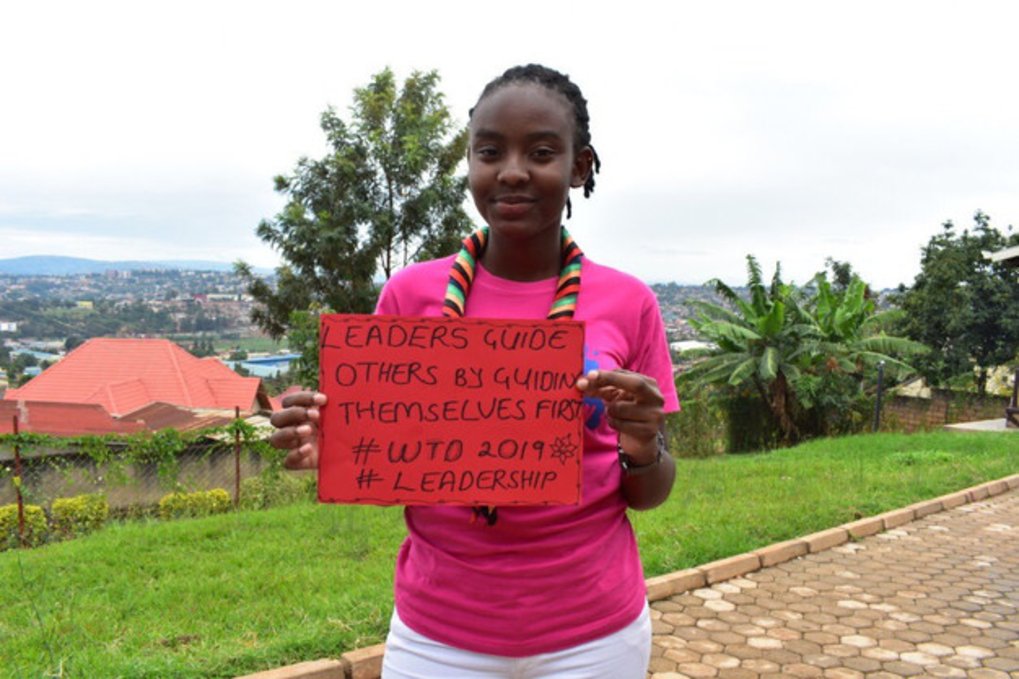 LEADERS GUIDE
OTHERS BY GUIDIN
THEMSELVES FIRST
#WTD 2019
# LEADERSHIP